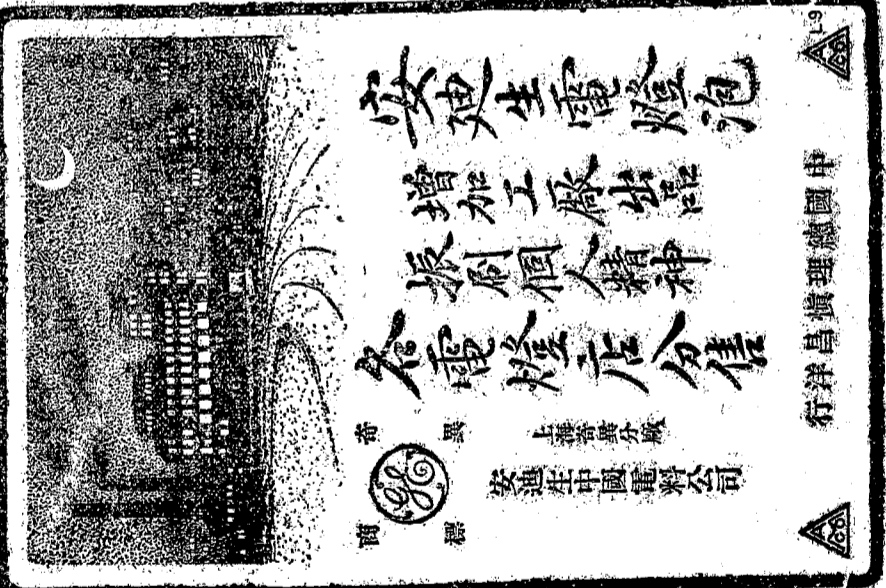 安迪生電燈泡
增加工廠出品
振刷個人精神
各電燈店分售
奇異
商標
GE
上海路分廠
安迪生中國電料公司
中國總理慎昌洋行
L9